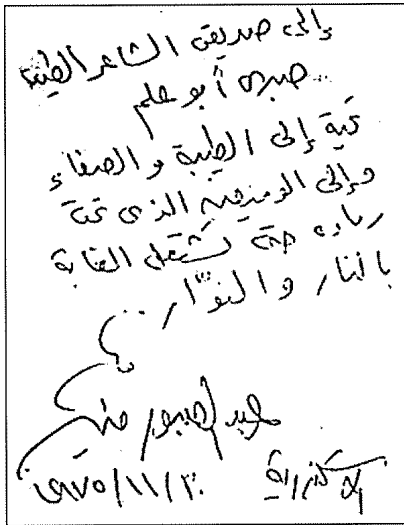 إلى صديقى الشاعر الطيب
صبرى أبو علم
تحية إلى الطيبة والصفاء
وإلى الوميض الذى تحت
رماده حتى تشتعل الغابة
بالنار والنوّار..
عبد الصبور منير
الاسكندرية ٣٠/١١/١٩٧٥